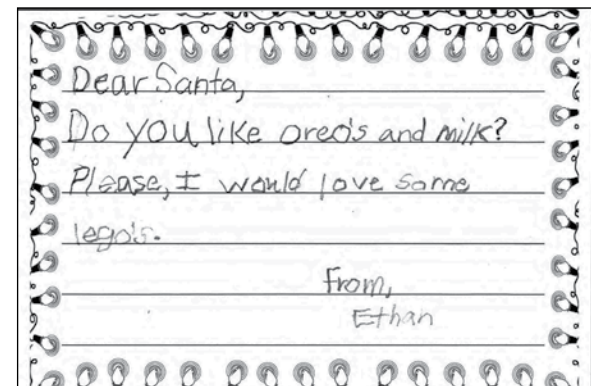 Dear Santa,
Do you like oreo's and milk?
Please, I would love some
lego's.
From,
Ethan